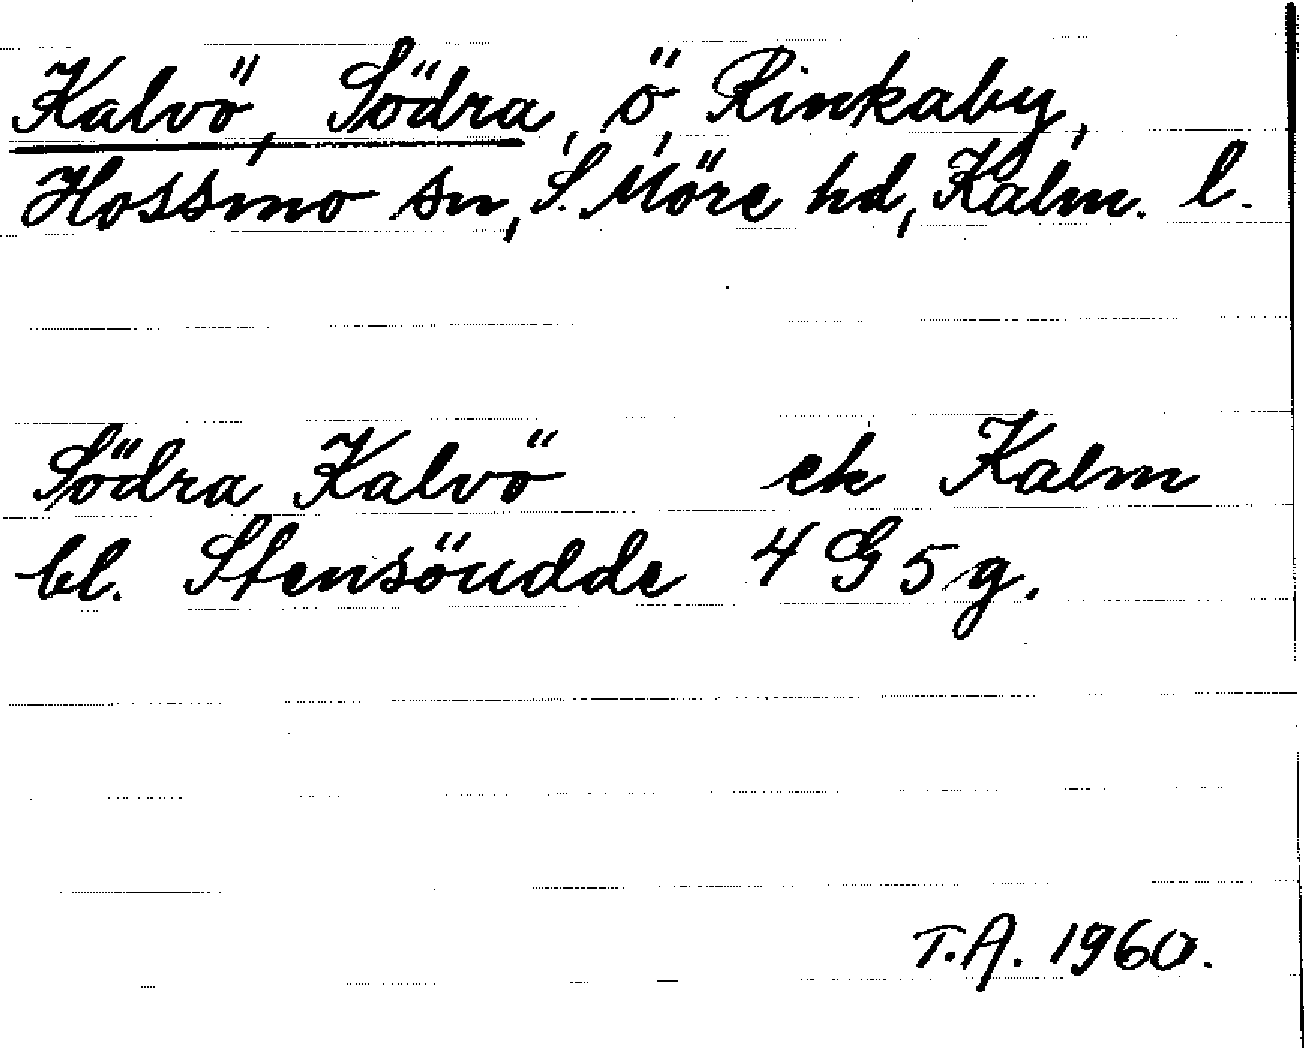 Kalvö, Södra, ö, Rinkaby,
Hossmo sn, S. Möre hd, Kalm. l.
Södra Kalvö ek Kalm
bl. Stensöudde 4 G 5 g.
T.A. 1960.